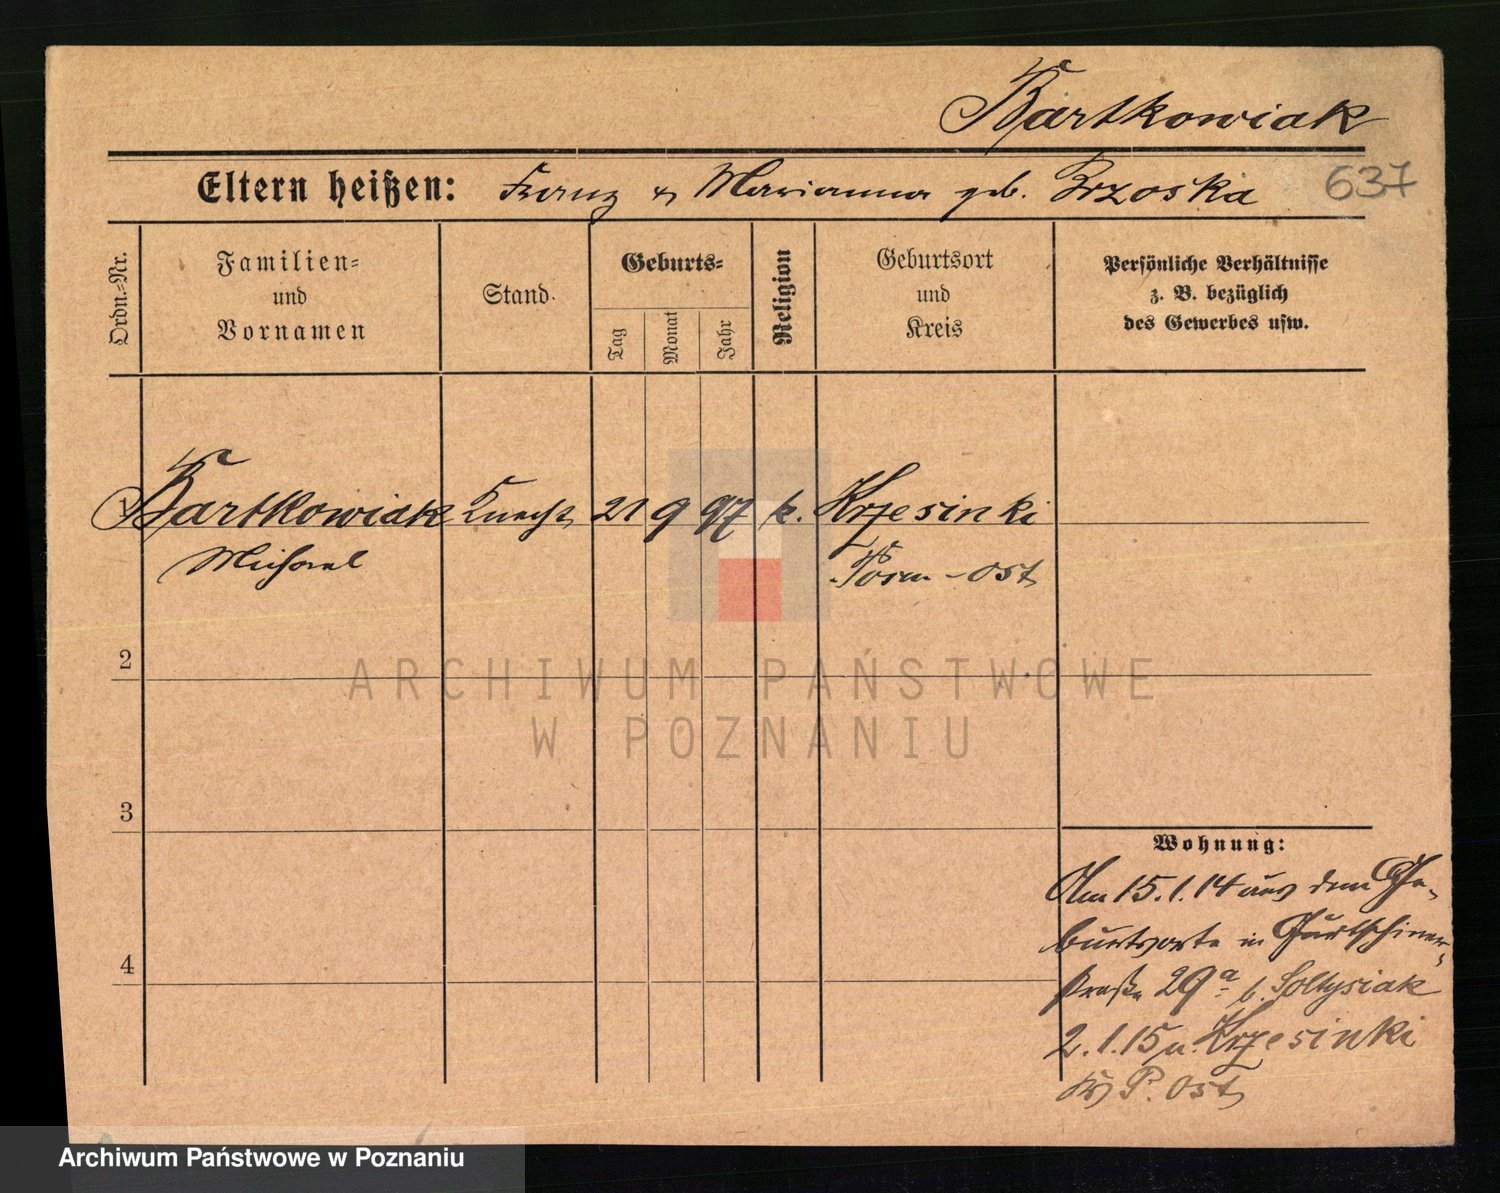 Bartkowiak
Eltern heißen: Franz & Marianna geb. Brzoska 637
Ordn.-Nr.
Familien-
und
Vornamen
Stand.
Geburts-
Tag
Monat
Jahr
Religion
Geburtsort
und
Kreis
Persönliche Verhältnisse
z. B. bezüglich
des Gewerbes usw.
1 Bartkowiak Knecht 21 9 97 k. Krzesinki
Michael Posen-Ost
2
ARCHIWUM PAŃSTWOWE
W POZNANIU
3
Wohnung:
Am 15.1.14 aus dem Ge-
burtsorte in Gurtschiner-
straße 29a b. Soltysiak
4
2.1.15 n. Krzesinki
Krs P. Ost
Archiwum Państwowe w Poznaniu